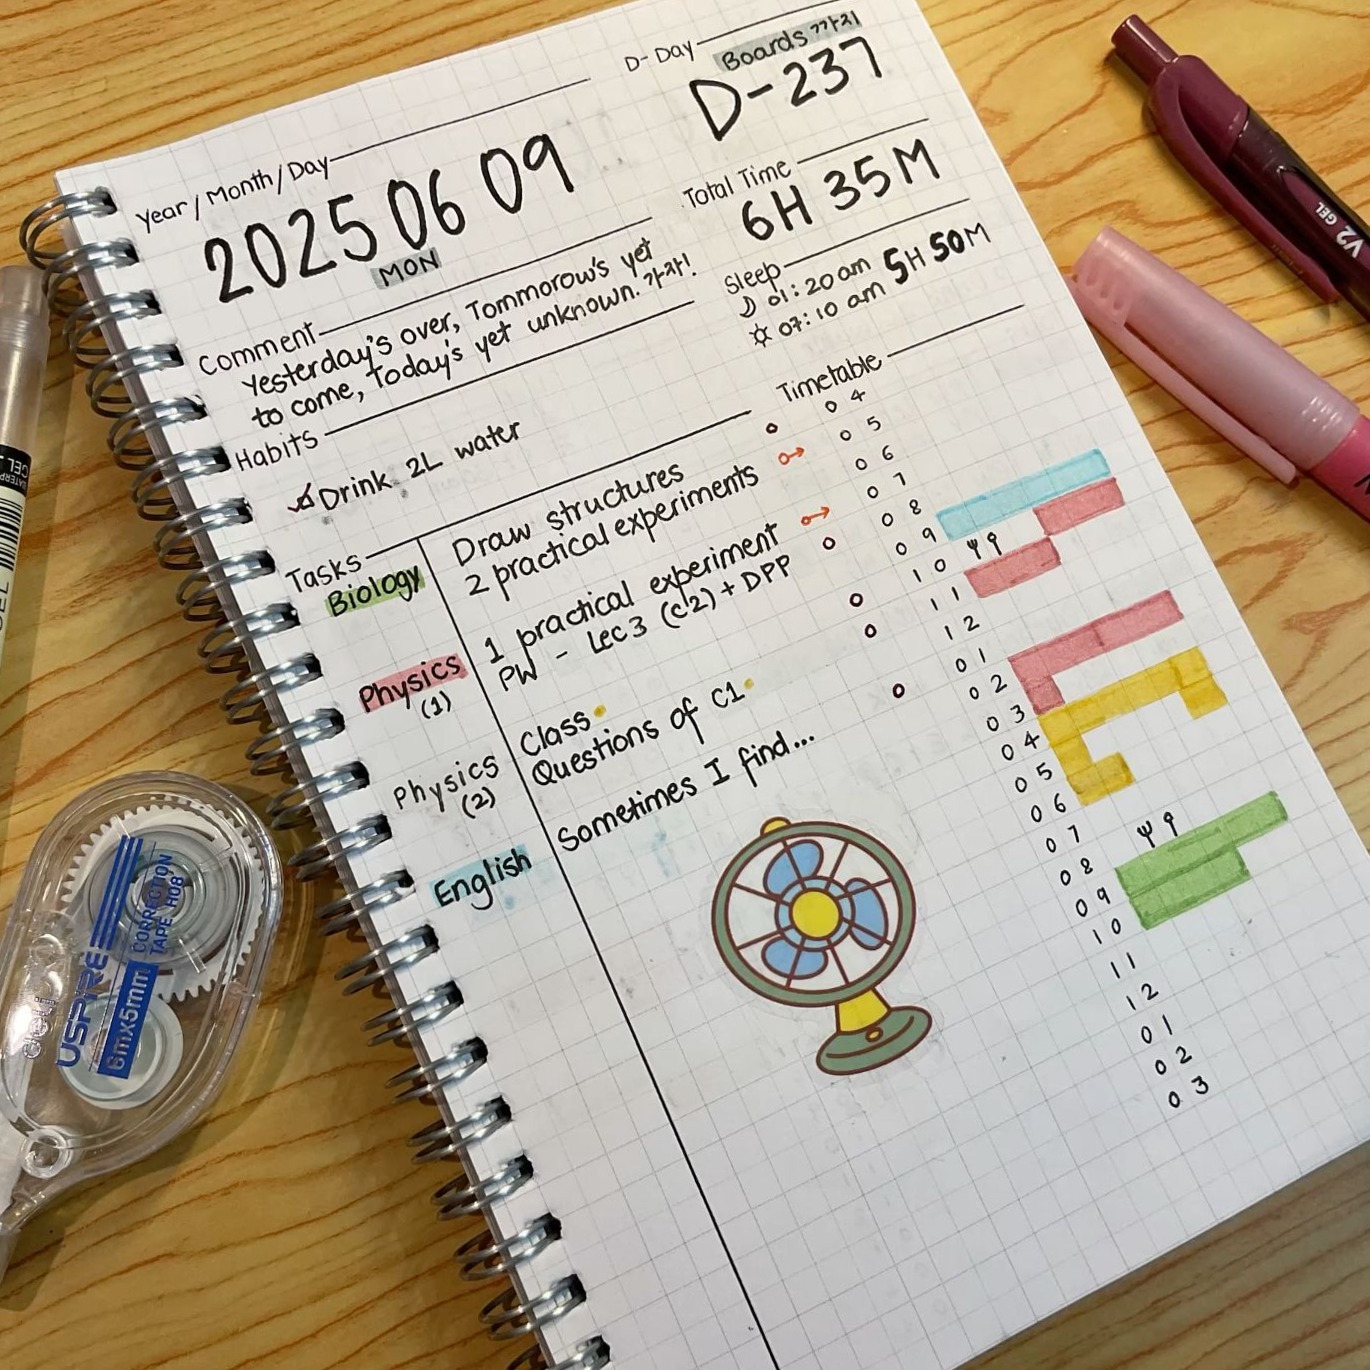 D-Day
Boards 까지
D-237
Year / Month / Day
2025 06 09
MON
Total Time
6H 35M
Comment
Yesterday's over, Tommorow's yet
to come, Today's yet unknown. 가자!
Sleep
01:20 am 5H 50M
07:10 am
Habits
Drink 2L water
Timetable
Tasks
Biology
Draw structures
2 practical experiments
Physics
(1)
1 practical experiment
PW - Lec 3 (C2) + DPP
Physics
(2)
Class
Questions of C1
English
Sometimes I find...
04
05
06
07
08
09
10
11
12
01
02
03
04
05
06
07
08
09
10
11
12
01
02
03
V2 GEL
GEL
deli
USPIRE
CORRECTION
TAPE H08
6mx5mm